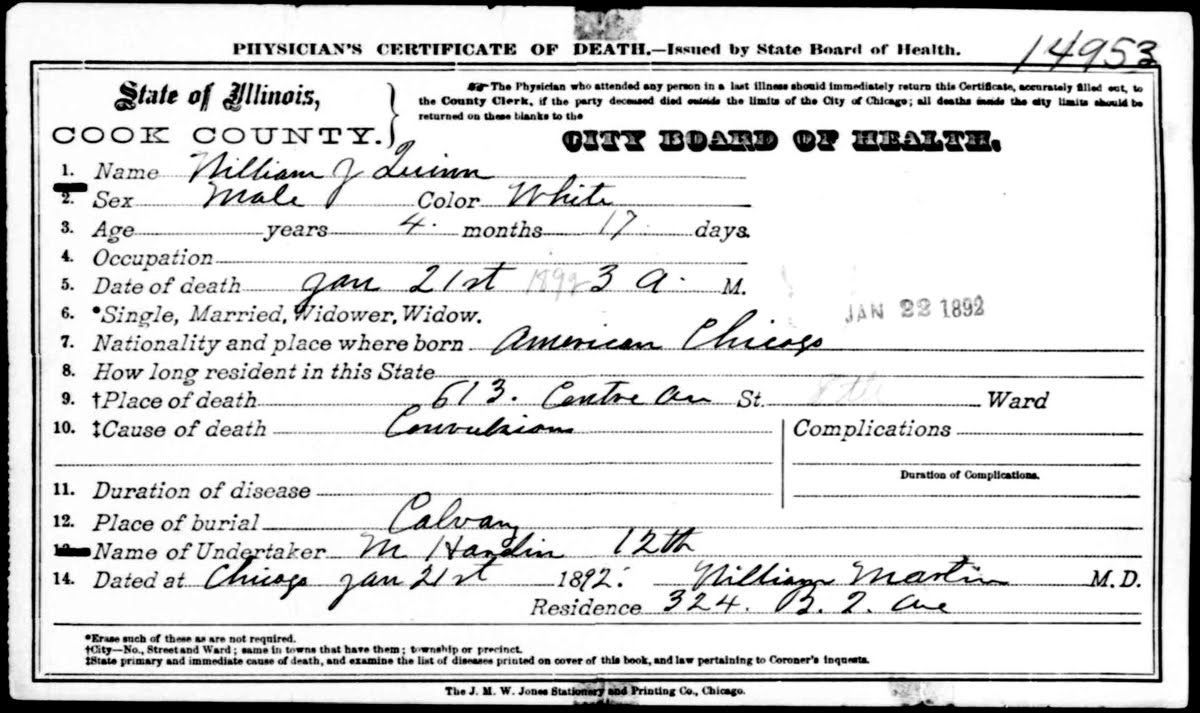 PHYSICIAN'S CERTIFICATE OF DEATH.—Issued by State Board of Health.
14953
State of Illinois,
COOK COUNTY.
☞ The Physician who attended any person in a last illness should immediately return this Certificate, accurately filled out, to
the County Clerk, if the party deceased died outside the limits of the City of Chicago; all deaths inside the city limits should be
returned on these blanks to the
CITY BOARD OF HEALTH.
1. Name William J Quinn
2. Sex Male Color White
3. Age years 4. months 17. days.
4. Occupation
5. Date of death Jan 21st 1892 3 A. M.
6. *Single, Married, Widower, Widow.
JAN 22 1892
7. Nationality and place where born American Chicago
8. How long resident in this State
9. †Place of death 613. Centre Av St. 8th Ward
10. ‡Cause of death Convulsions Complications
Duration of Complications.
11. Duration of disease
12. Place of burial Calvary
13. Name of Undertaker M Hardin 12th
14. Dated at Chicago Jan 21st 1892. William Martin M. D.
Residence 324. B. I. Ave
*Erase such of these as are not required.
†City—No., Street and Ward; same in towns that have them; township or precinct.
‡State primary and immediate cause of death, and examine the list of diseases printed on cover of this book, and law pertaining to Coroner's inquests.
The J. M. W. Jones Stationery and Printing Co., Chicago.